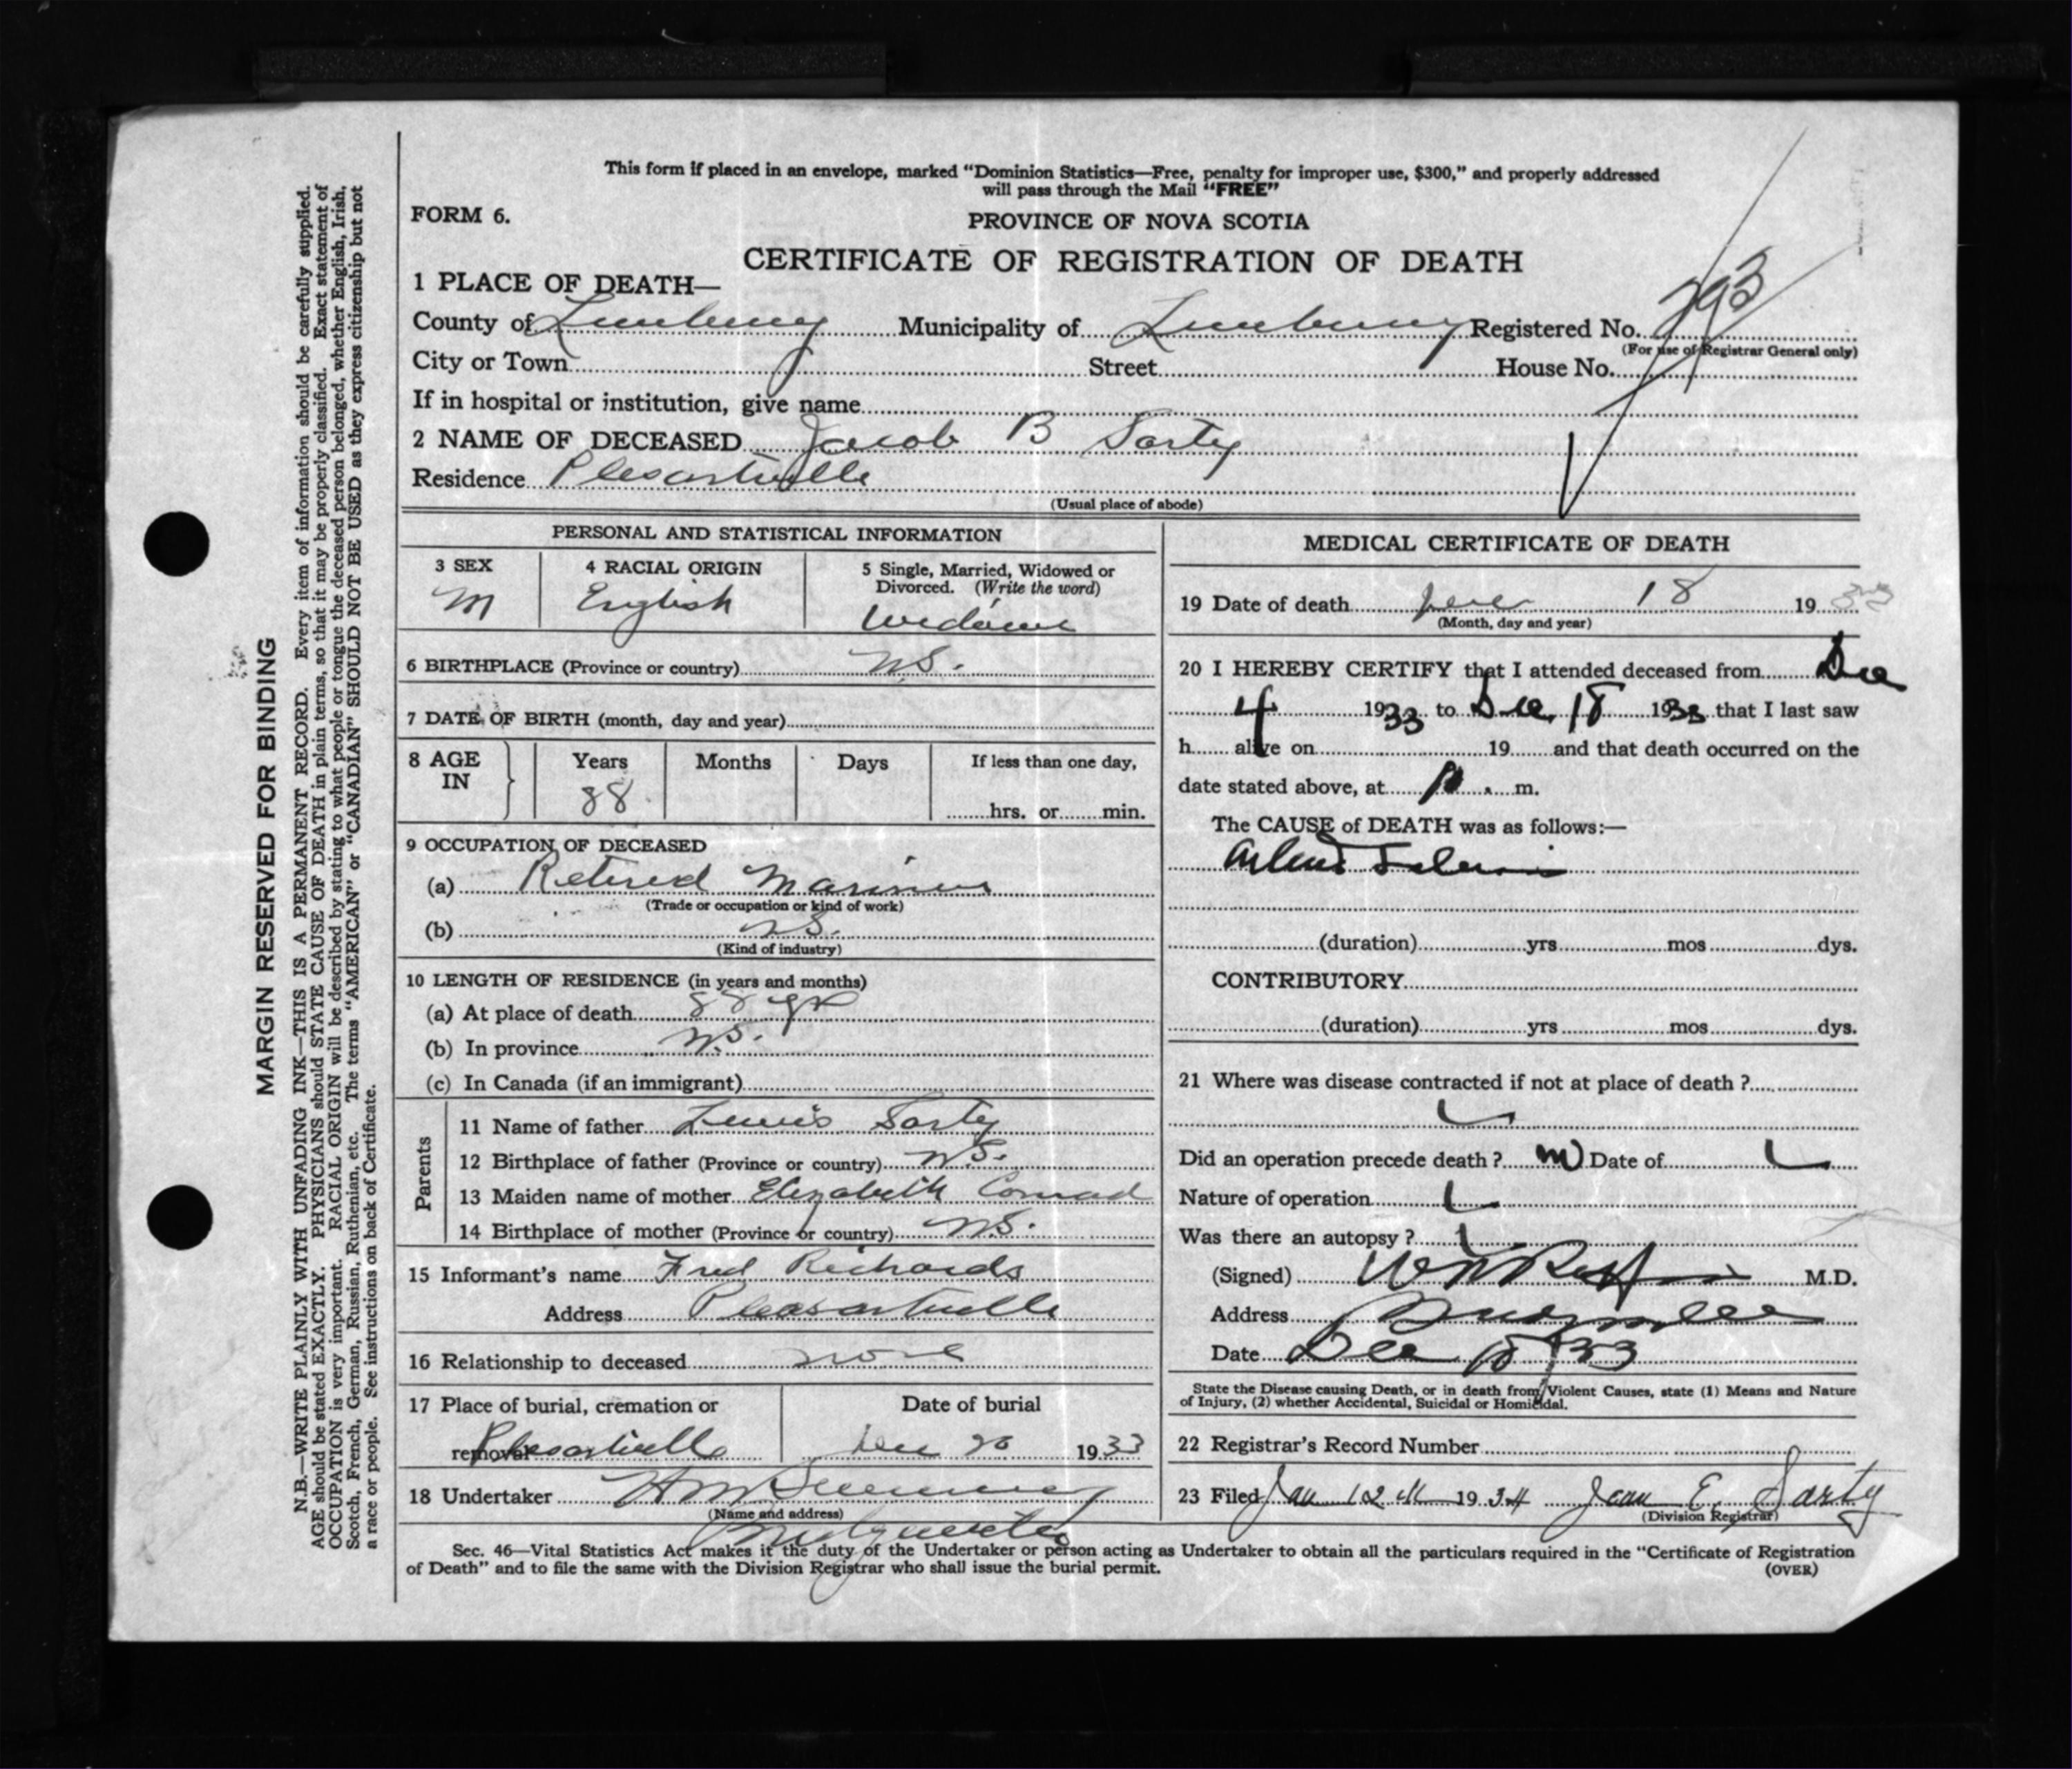 This form if placed in an envelope, marked “Dominion Statistics—Free, penalty for improper use, $300,” and properly addressed
will pass through the Mail “FREE”
FORM 6.
PROVINCE OF NOVA SCOTIA
CERTIFICATE OF REGISTRATION OF DEATH
1 PLACE OF DEATH—
County of Lunenburg Municipality of Lunenburg Registered No. 293
(For use of Registrar General only)
City or Town Street House No.
If in hospital or institution, give name
2 NAME OF DECEASED Jacob B Sarty
Residence Plesantville
(Usual place of abode)
PERSONAL AND STATISTICAL INFORMATION
3 SEX 4 RACIAL ORIGIN 5 Single, Married, Widowed or
Divorced. (Write the word)
M English Widower
6 BIRTHPLACE (Province or country) N.S.
7 DATE OF BIRTH (month, day and year)
8 AGE IN Years Months Days If less than one day,
88 hrs. or min.
9 OCCUPATION OF DECEASED
(a) Retired Mariner
(Trade or occupation or kind of work)
(b) N.S.
(Kind of industry)
10 LENGTH OF RESIDENCE (in years and months)
(a) At place of death 88 yr
(b) In province N.S.
(c) In Canada (if an immigrant)
Parents
11 Name of father Lewis Sarty
12 Birthplace of father (Province or country) N.S.
13 Maiden name of mother Elizabeth Conrad
14 Birthplace of mother (Province or country) N.S.
15 Informant's name Fred Richards
Address Pleasantville
16 Relationship to deceased none
17 Place of burial, cremation or Date of burial
removal Plesantville Dec 20 1933
18 Undertaker
(Name and address)
Bridgewater
MEDICAL CERTIFICATE OF DEATH
19 Date of death Dec 18 1933
(Month, day and year)
20 I HEREBY CERTIFY that I attended deceased from Dec
4 1933 to Dec 18 1933 that I last saw
h alive on 19 and that death occurred on the
date stated above, at m.
The CAUSE of DEATH was as follows:—
(duration) yrs mos dys.
CONTRIBUTORY
(duration) yrs mos dys.
21 Where was disease contracted if not at place of death ?
Did an operation precede death ? no Date of
Nature of operation
Was there an autopsy ?
(Signed) M.D.
Address
Date Dec 18/33
State the Disease causing Death, or in death from Violent Causes, state (1) Means and Nature
of Injury, (2) whether Accidental, Suicidal or Homicidal.
22 Registrar's Record Number
23 Filed Jan 12th 1934 Jean E. Sarty
(Division Registrar)
Sec. 46—Vital Statistics Act makes it the duty of the Undertaker or person acting as Undertaker to obtain all the particulars required in the “Certificate of Registration
of Death” and to file the same with the Division Registrar who shall issue the burial permit. (OVER)
MARGIN RESERVED FOR BINDING
N.B.—WRITE PLAINLY WITH UNFADING INK—THIS IS A PERMANENT RECORD. Every item of information should be carefully supplied.
AGE should be stated EXACTLY. PHYSICIANS should STATE CAUSE OF DEATH in plain terms, so that it may be properly classified. Exact statement of
OCCUPATION is very important. RACIAL ORIGIN will be described by stating to what people or tongue the deceased person belonged, whether English, Irish,
Scotch, French, German, Russian, Ruthenian, etc. The terms “AMERICAN” or “CANADIAN” SHOULD NOT BE USED as they express citizenship but not
a race or people. See instructions on back of Certificate.